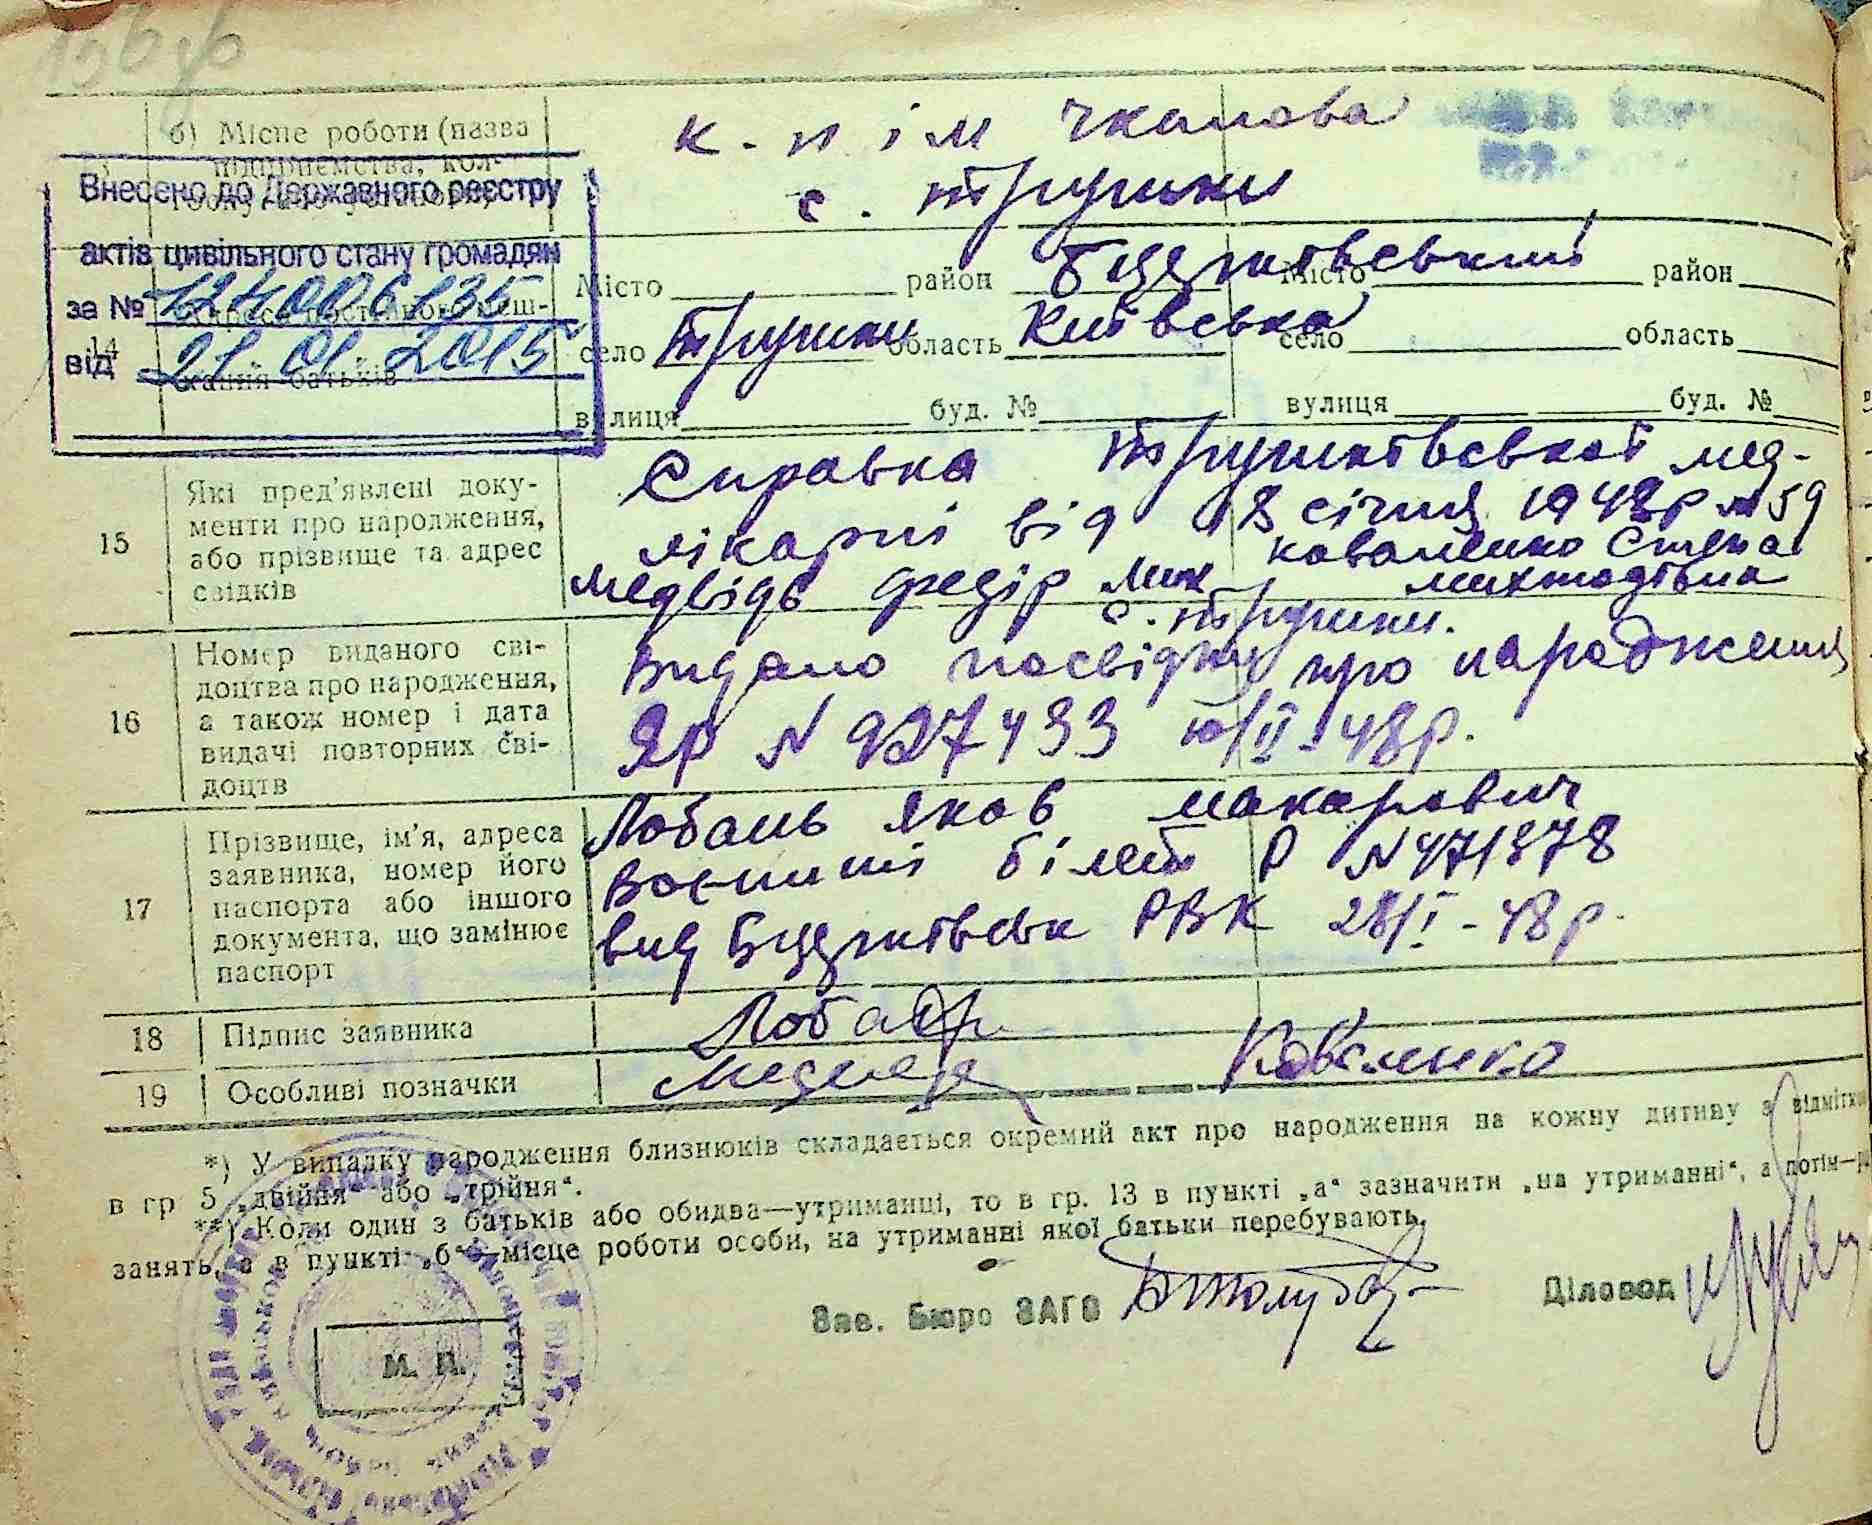 б) Місце роботи (назва
підприємства, кол-
к. п ім Чкалова
с. Трушки
Внесено до Державного реєстру
актів цивільного стану громадян
за № 12400 6135
від 21. 01. 2015
14
жання батьків
Місто район Білоцерківський Місто район
село Трушки область Київська село область
вулиця буд. № вулиця буд. №
15
Які пред'явлені доку-
менти про народження,
або прізвище та адрес
свідків
Справка Трушківської мед-
лікарні від 18 січня 1948р №59
Медвідь Федір Мих Коваленко Степа
с. Трушки.
16
Номер виданого сві-
доцтва про народження,
а також номер і дата
видачі повторних сві-
доцтв
Видано посвідку про народження
ЯР N 927433 10/II-48р.
17
Прізвище, ім'я, адреса
заявника, номер його
паспорта або іншого
документа, що замінює
паспорт
Лобань Яков Макарович
Воєнний білет Р N471378
вид РВК 28/I-48р.
18 Підпис заявника Лобань
19 Особливі позначки Медведь Коваленко
*) У випадку народження близнюків складається окремий акт про народження на кожну дитину з відміткою
в гр 5 „двійня“ або „трійня“.
**) Коли один з батьків або обидва—утриманці, то в гр. 13 в пункті „а“ зазначити „на утриманні“, а потім—
занять, а в пункті „б“—місце роботи особи, на утриманні якої батьки перебувають.
Зав. Бюро ЗАГС Діловод
М. П.